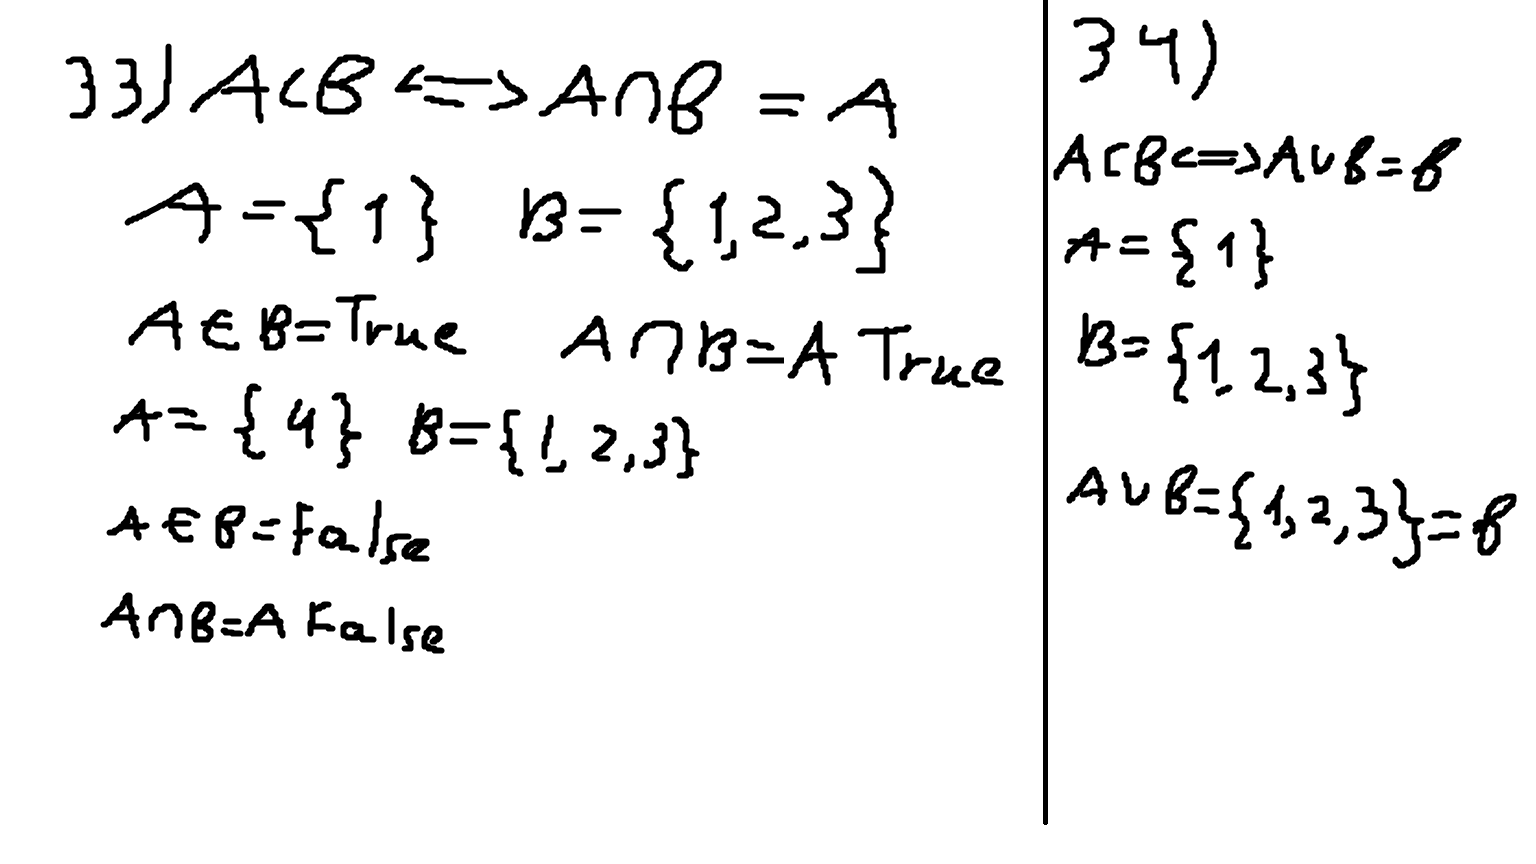 33) A ⊂ B <=> A ∩ B = A
A = { 1 } B = { 1, 2, 3 }
A ∈ B = True A ∩ B = A True
A = { 4 } B = { 1, 2, 3 }
A ∈ B = False
A ∩ B = A False
34)
A ⊂ B <=> A ∪ B = B
A = { 1 }
B = { 1, 2, 3 }
A ∪ B = { 1, 2, 3 } = B